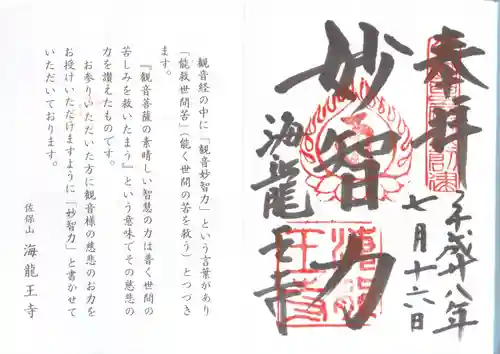 奉拝
平成廿八年
七月十六日
妙智力
海龍王寺
観音経の中に「観音妙智力」という言葉があり
「能救世間苦」(能く世間の苦を救う)とつづき
ます。
『観音菩薩の素晴しい智慧の力は普く世間の
苦しみを救いたまう』という意味でその慈悲の
力を讃えたものです。
お参りいただいた方に観音様の慈悲のお力を
お授けいただけますように「妙智力」と書かせて
いただいております。
佐保山 海龍王寺